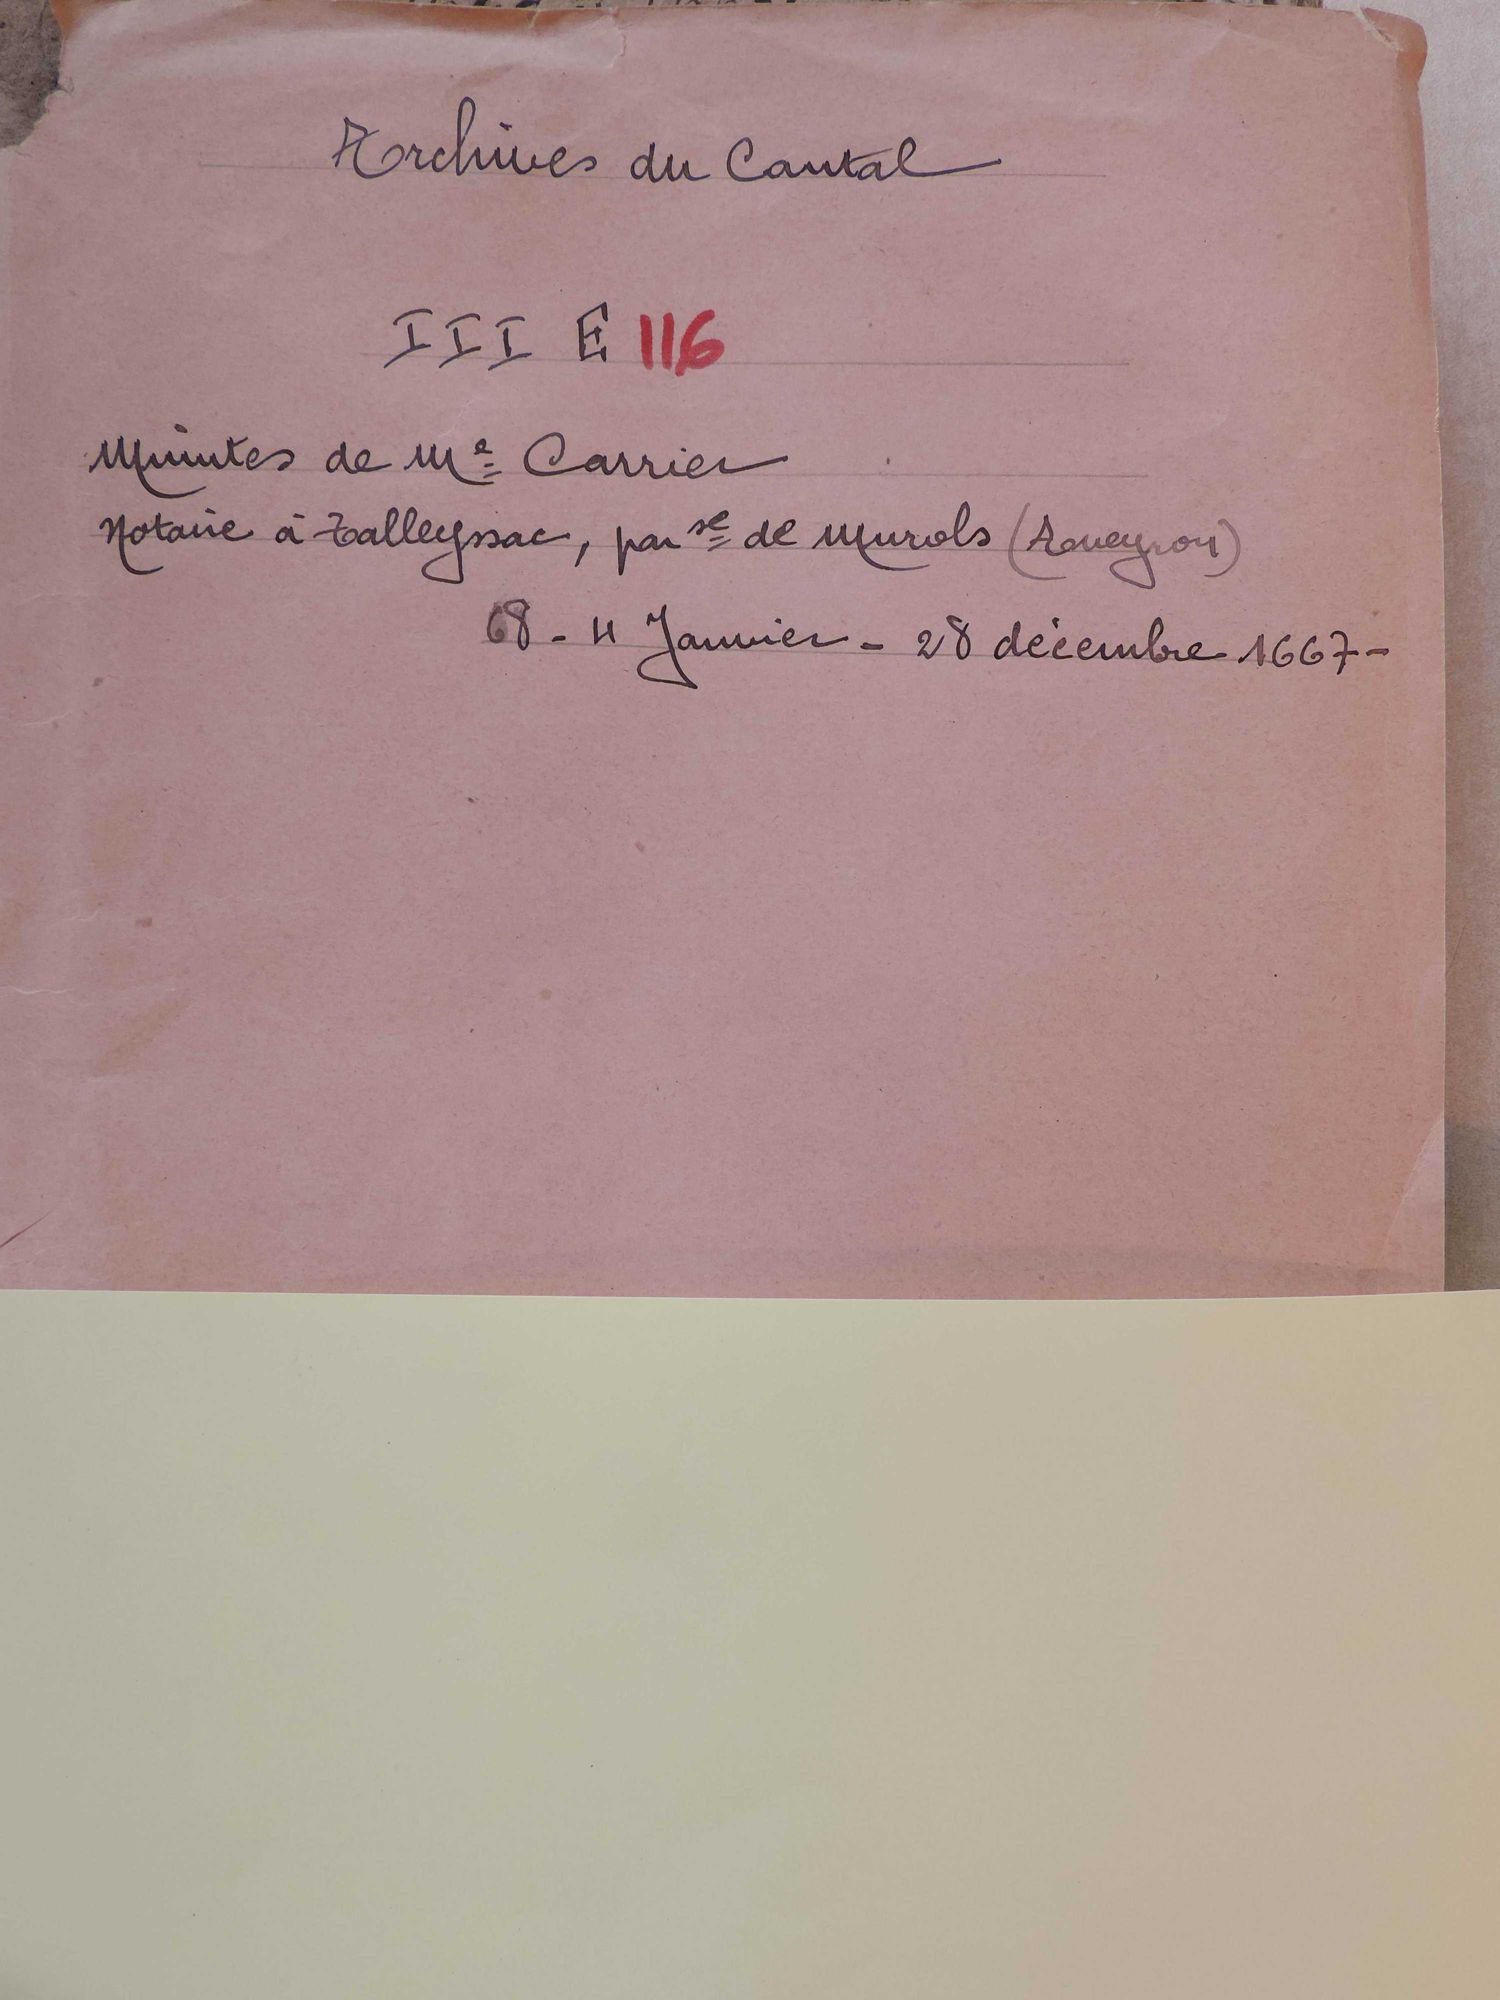 Archives du Cantal
III E 116
Minutes de Me Carrier
Notaire à Talleyssac, par se de Murols (Aveyron)
68 - 4 Janvier - 28 décembre 1667 -